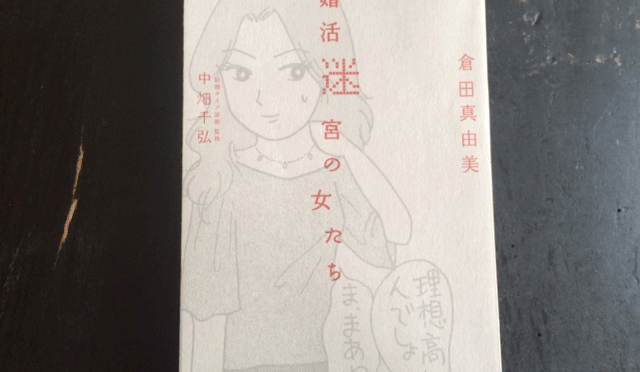 倉田真由美
婚活迷宮の女たち
中畑千弘
理想高
んでしょ
ま、まあ